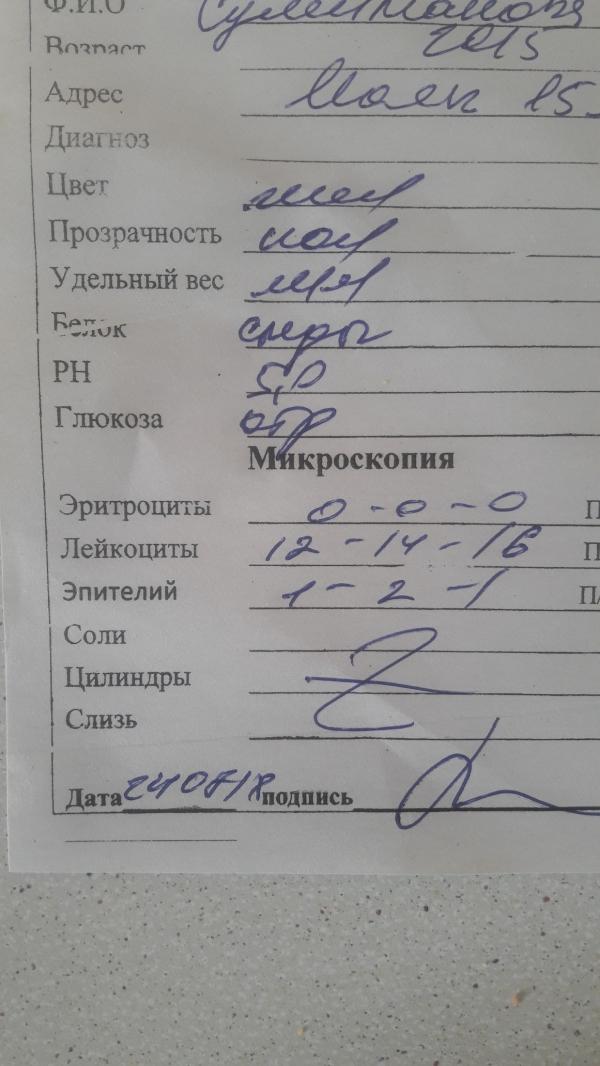 Ф.И.О
Возраст 2015
Адрес Маяк 15
Диагноз
Цвет жел
Прозрачность пол
Удельный вес м/м
Белок следы
PH 5,0
Глюкоза отр
Микроскопия
Эритроциты 0 - 0 - 0 П
Лейкоциты 12 - 14 - 16 П
Эпителий 1 - 2 - 1 П/
Соли
Цилиндры
Слизь
Дата подпись